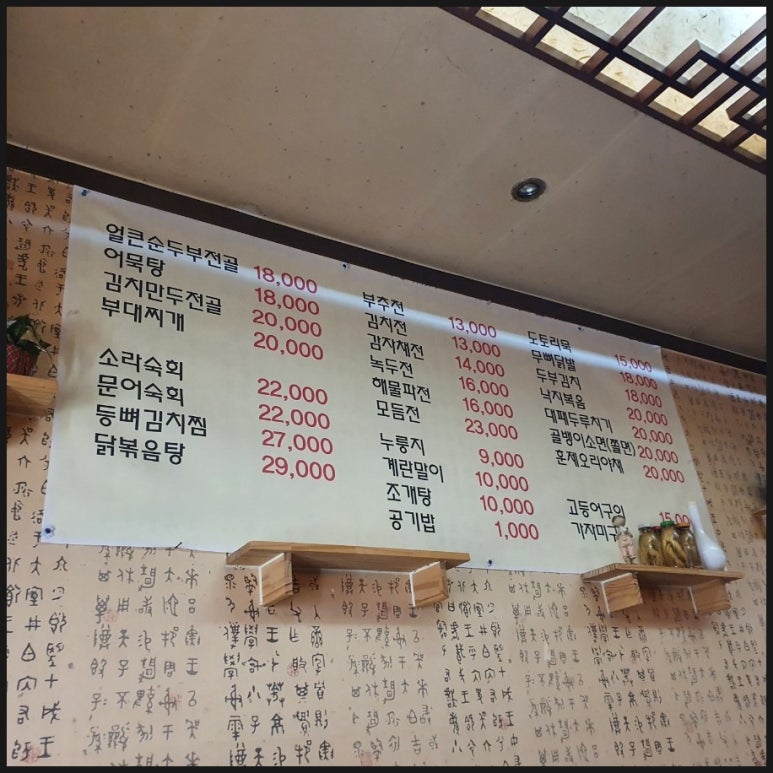 얼큰순두부전골 18,000
어묵탕 18,000
김치만두전골 20,000
부대찌개 20,000
소라숙회 22,000
문어숙회 22,000
등뼈김치찜 27,000
닭볶음탕 29,000
부추전 13,000
김치전 13,000
감자채전 14,000
녹두전 16,000
해물파전 16,000
모듬전 23,000
누룽지 9,000
계란말이 10,000
조개탕 10,000
공기밥 1,000
도토리묵 15,000
무뼈닭발 18,000
두부김치 18,000
낙지볶음 20,000
대패두루치기 20,000
골뱅이소면(쫄면) 20,000
훈제오리야채 20,000
고등어구이 15,00
가자미구